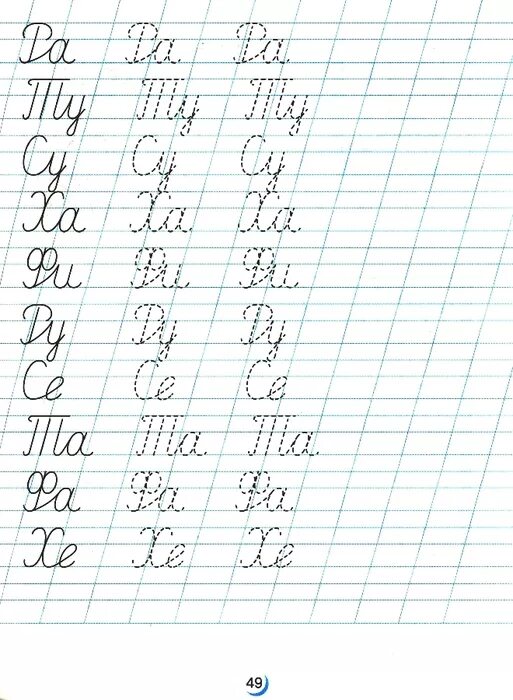 Ра Ра Ра
Ту Ту Ту
Су Су Су
Ха Ха Ха
Фи Фи Фи
Ру Ру Ру
Се Се Се
Та Та Та
Фа Фа Фа
Хе Хе Хе
49